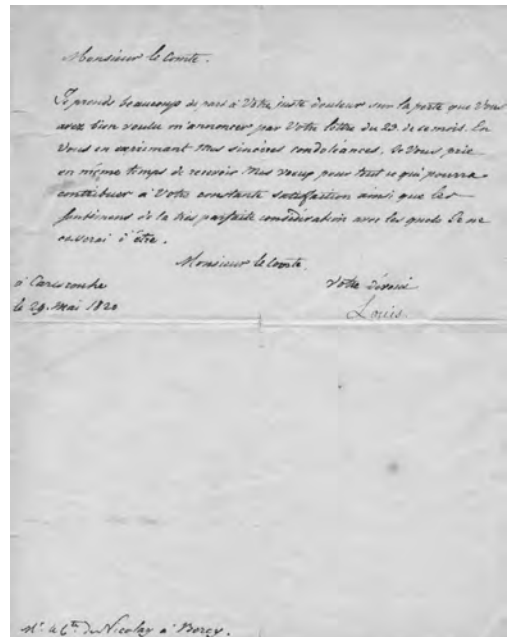 Monsieur le Comte.
Je prends beaucoup de part à Votre juste douleur sur la perte que Vous
avez bien voulu m'annoncer par Votre lettre du 23. de ce mois. En
Vous en exprimant Mes sincères condoléances, Je Vous prie
en même temps de recevoir Mes voeux pour tout ce qui pourra
contribuer à Votre constante satisfaction ainsi que les
sentimens de la très parfaite considération avec les quels Je ne
cesserai d'être.
Monsieur le Comte.
à Carlsrouhe
le 29. Mai 1820
Votre dévoué
Louis.
Mr. le Cte. de Nicolay à Bercy.